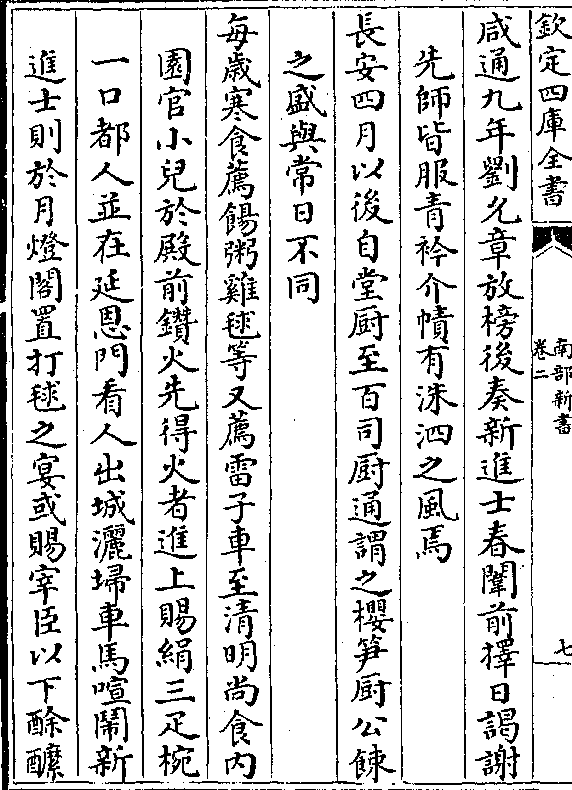 欽定四庫全書
南部新書
卷二
七
咸通九年劉允章放榜後奏新進士春闈前擇日謁謝
先師皆服青衿介幘有洙泗之風焉
長安四月以後自堂厨至百司厨通謂之櫻笋厨公餗
之盛與常日不同
每歲寒食薦餳粥雞毬等又薦雷子車至清明尚食内
園官小兒於殿前鑽火先得火者進上賜絹三疋椀
一口都人並在延恩門看人出城灑埽車馬喧鬧新
進士則於月燈閣置打毬之宴或賜宰臣以下酴醾